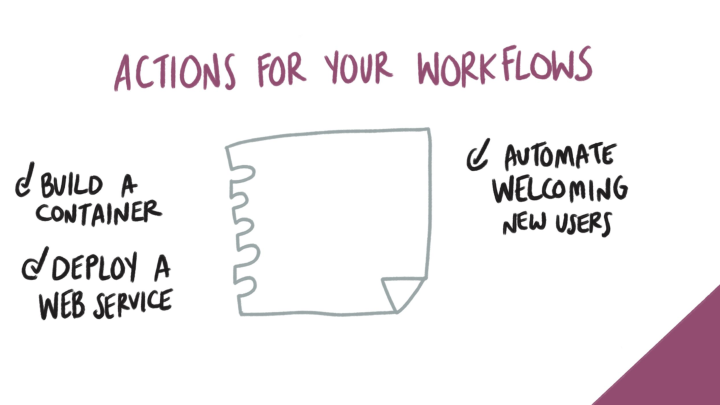 ACTIONS FOR YOUR WORKFLOWS
BUILD A
CONTAINER
DEPLOY A
WEB SERVICE
AUTOMATE
WELCOMING
NEW USERS